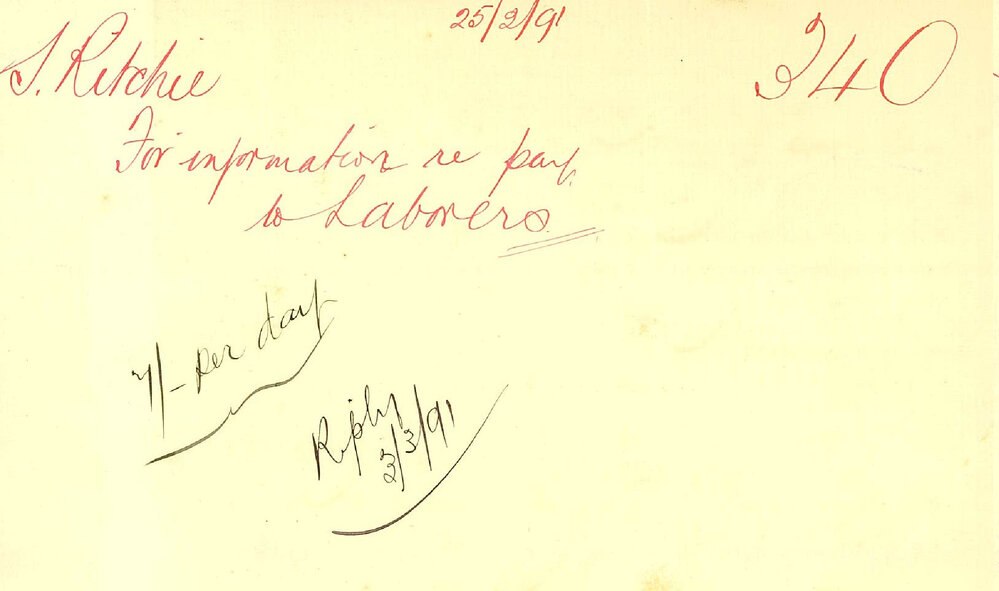 25/2/91
340
S. Ritchie
For information re pay
to Laborers
7/- per day
Reply
3/3/91